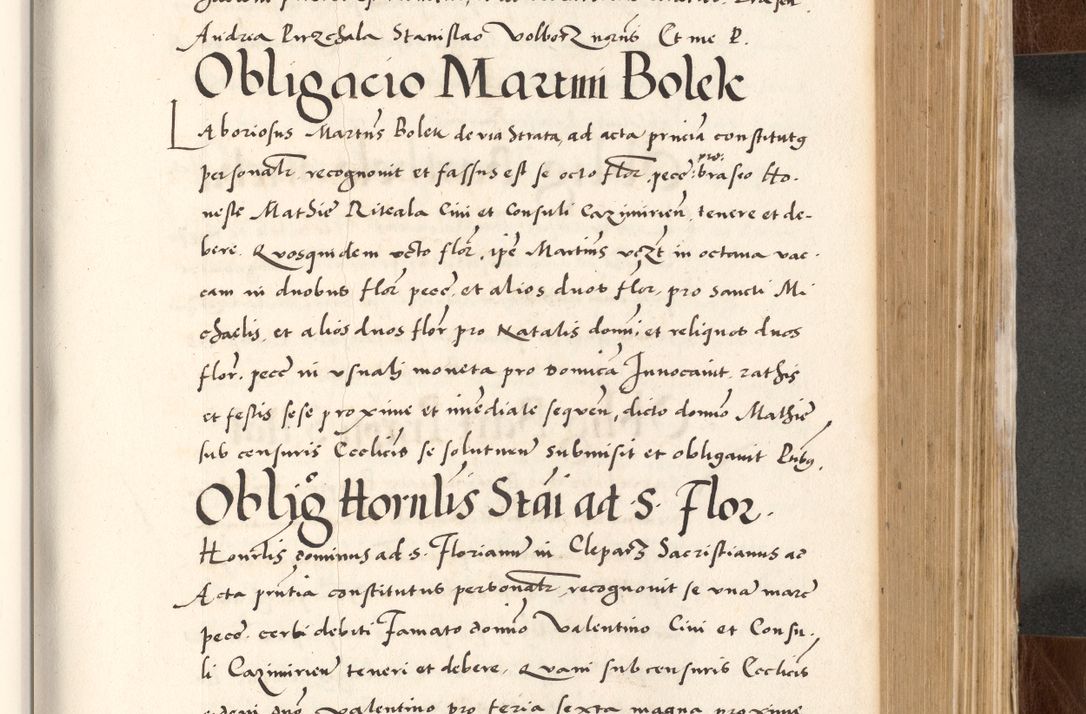 Andrea Przchala Stanislao Volborz noriis Et me P.
Obligacio Martini Bolek
Laboriosus Martins Bolek de via Strata, ad acta prncia constitutq
personalr. recognovit et fassus est se octo flor. pecc: pro braseo Ho-
neste Mathie Riteala Civi et Consuli Cazimirien. tenere et de-
bere. Quosquidem octo flor. ipe Martins in octava vac-
cam in duobus flor pecc. et alios duos flor. pro Sancti Mi
chaelis, et alios duos flor pro Natalis domi, et reliquos duos
flor. pecc in usuali moneta pro Domica Invocavit. rathis
et festis sese proxime et imediate sequen, dicto domo Mathie
sub censuris Ecclicis se soluturu submisit et obligavit
Obligo Hornlis Stai ad S. Flor.
Honrlis dominus ad S. Florianu in Cleparz Sacristianus ad
Acta prntia constitutus personalr recognovit se una marc
pecc. certi debiti Famato domo Valentino Civi et Consu-
li Cazimirien teneri et debere. Quam sub censuris Ecclicis
eidem dno Valentino pro feria sexta magna proxime